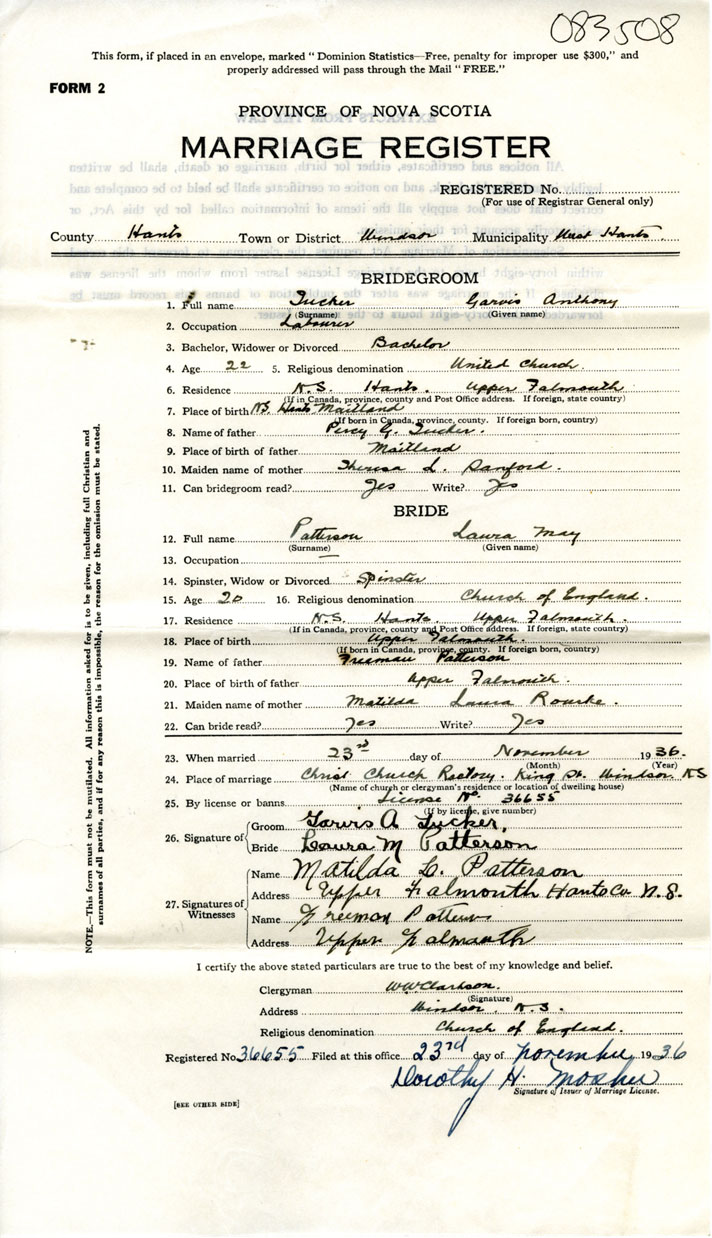 083508
This form, if placed in an envelope, marked "Dominion Statistics—Free, penalty for improper use $300," and
properly addressed will pass through the Mail "FREE."
FORM 2
PROVINCE OF NOVA SCOTIA
MARRIAGE REGISTER
REGISTERED No.
(For use of Registrar General only)
County Hants Town or District Windsor Municipality West Hants
BRIDEGROOM
1. Full name Tucker Garvis Anthony
(Surname) (Given name)
2. Occupation Labourer
3. Bachelor, Widower or Divorced Bachelor
4. Age 22 5. Religious denomination United Church.
6. Residence N.S. Hants. Upper Falmouth
(If in Canada, province, county and Post Office address. If foreign, state country)
7. Place of birth N.S. Hants Maitland
(If born in Canada, province, county. If foreign born, country)
8. Name of father Percy G. Tucker.
9. Place of birth of father Maitland
10. Maiden name of mother Theresa L. Sanford.
11. Can bridegroom read? Yes Write? Yes
BRIDE
12. Full name Patterson Laura May
(Surname) (Given name)
13. Occupation —
14. Spinster, Widow or Divorced Spinster
15. Age 20 16. Religious denomination Church of England.
17. Residence N.S. Hants. Upper Falmouth.
(If in Canada, province, county and Post Office address. If foreign, state country)
18. Place of birth Upper Falmouth.
(If born in Canada, province, county. If foreign born, country)
19. Name of father Freeman Patterson
20. Place of birth of father Upper Falmouth.
21. Maiden name of mother Matilda Laura Rourke.
22. Can bride read? Yes Write? Yes
23. When married 23rd day of November 1936.
(Month) (Year)
24. Place of marriage Christ Church Rectory. King St. Windsor. N.S
(Name of church or clergyman's residence or location of dwelling house)
25. By license or banns License No. 36655
(If by license, give number)
26. Signature of
Groom Garvis A Tucker,
Bride Laura M Patterson
27. Signatures of Witnesses
Name Matilda L. Patterson
Address Upper Falmouth Hants Co N.S.
Name Freeman Patterson
Address Upper Falmouth
I certify the above stated particulars are true to the best of my knowledge and belief.
Clergyman WW Clarkson.
(Signature)
Address Windsor. N.S.
Religious denomination Church of England.
Registered No. 36655 Filed at this office 23rd day of November 1936
Dorothy H. Mosher
Signature of Issuer of Marriage License.
[SEE OTHER SIDE]
NOTE.—This form must not be mutilated. All information asked for is to be given, including full Christian and
surnames of all parties, and if for any reason this is impossible, the reason for the omission must be stated.